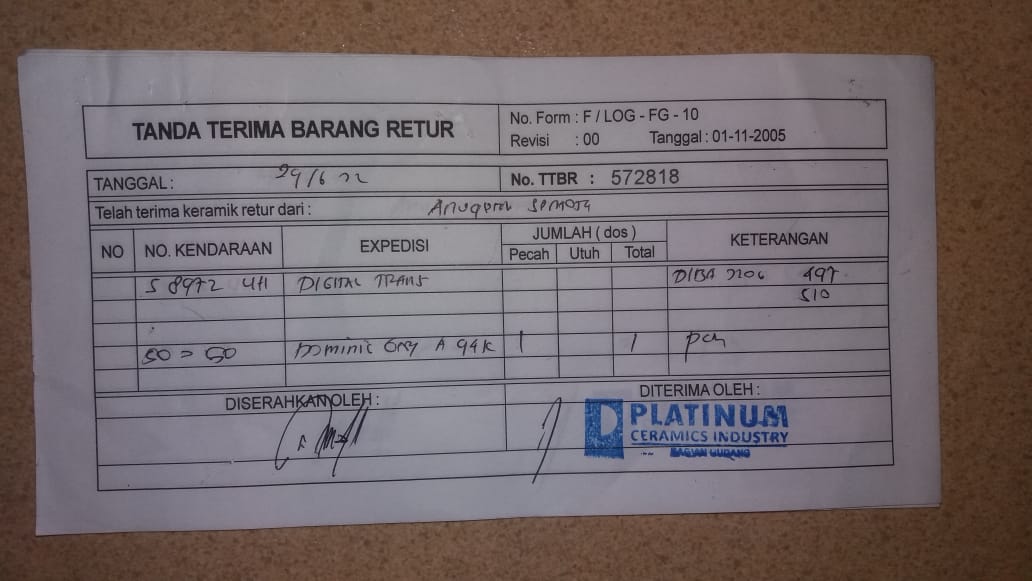 TANDA TERIMA BARANG RETUR
No. Form : F / LOG - FG - 10
Revisi : 00 Tanggal : 01-11-2005
TANGGAL : 29/6 22
No. TTBR : 572818
Telah terima keramik retur dari :
NO NO. KENDARAAN EXPEDISI JUMLAH ( dos ) KETERANGAN
Pecah Utuh Total
S 8972 UH DIGITAL TRANS DIBA 2206 497
510
DOMINIC GRY A 94K 1 1
DISERAHKAN OLEH : DITERIMA OLEH :
PLATINUM
CERAMICS INDUSTRY
BAGIAN GUDANG